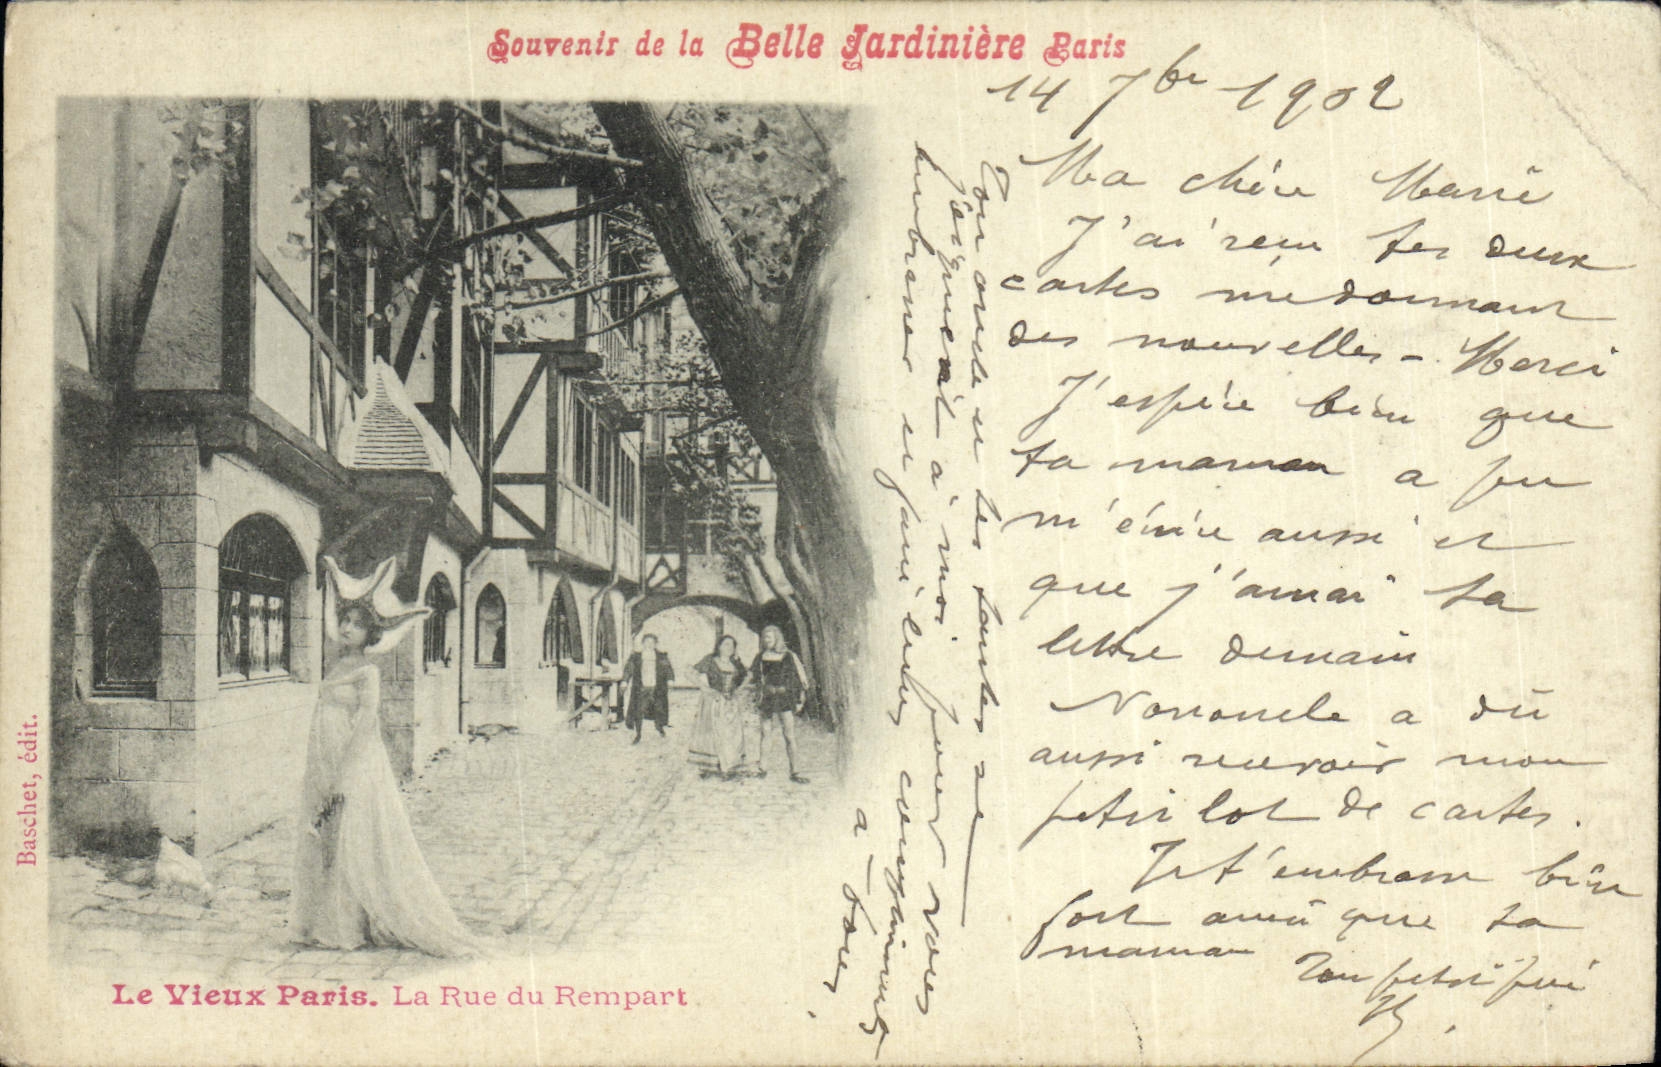 Souvenir de la Belle Jardinière Paris
14 7bre 1902
Ma chère Marie
J'ai reçu tes deux
cartes me donnant
des nouvelles - Merci
J'espère bien que
ta maman a pu
m'écrire aussi et
que j'aurai sa
lettre demain
Nononcle a dû
aussi recevoir mon
petit lot de cartes.
Je t'embrasse bien
fort ainsi que ta
maman
Ton petit père
Ton oncle et tes tantes se
joignent à moi pour vous
embrasser et faire leurs compliments
à tous
Baschet, édit.
Le Vieux Paris. La Rue du Rempart